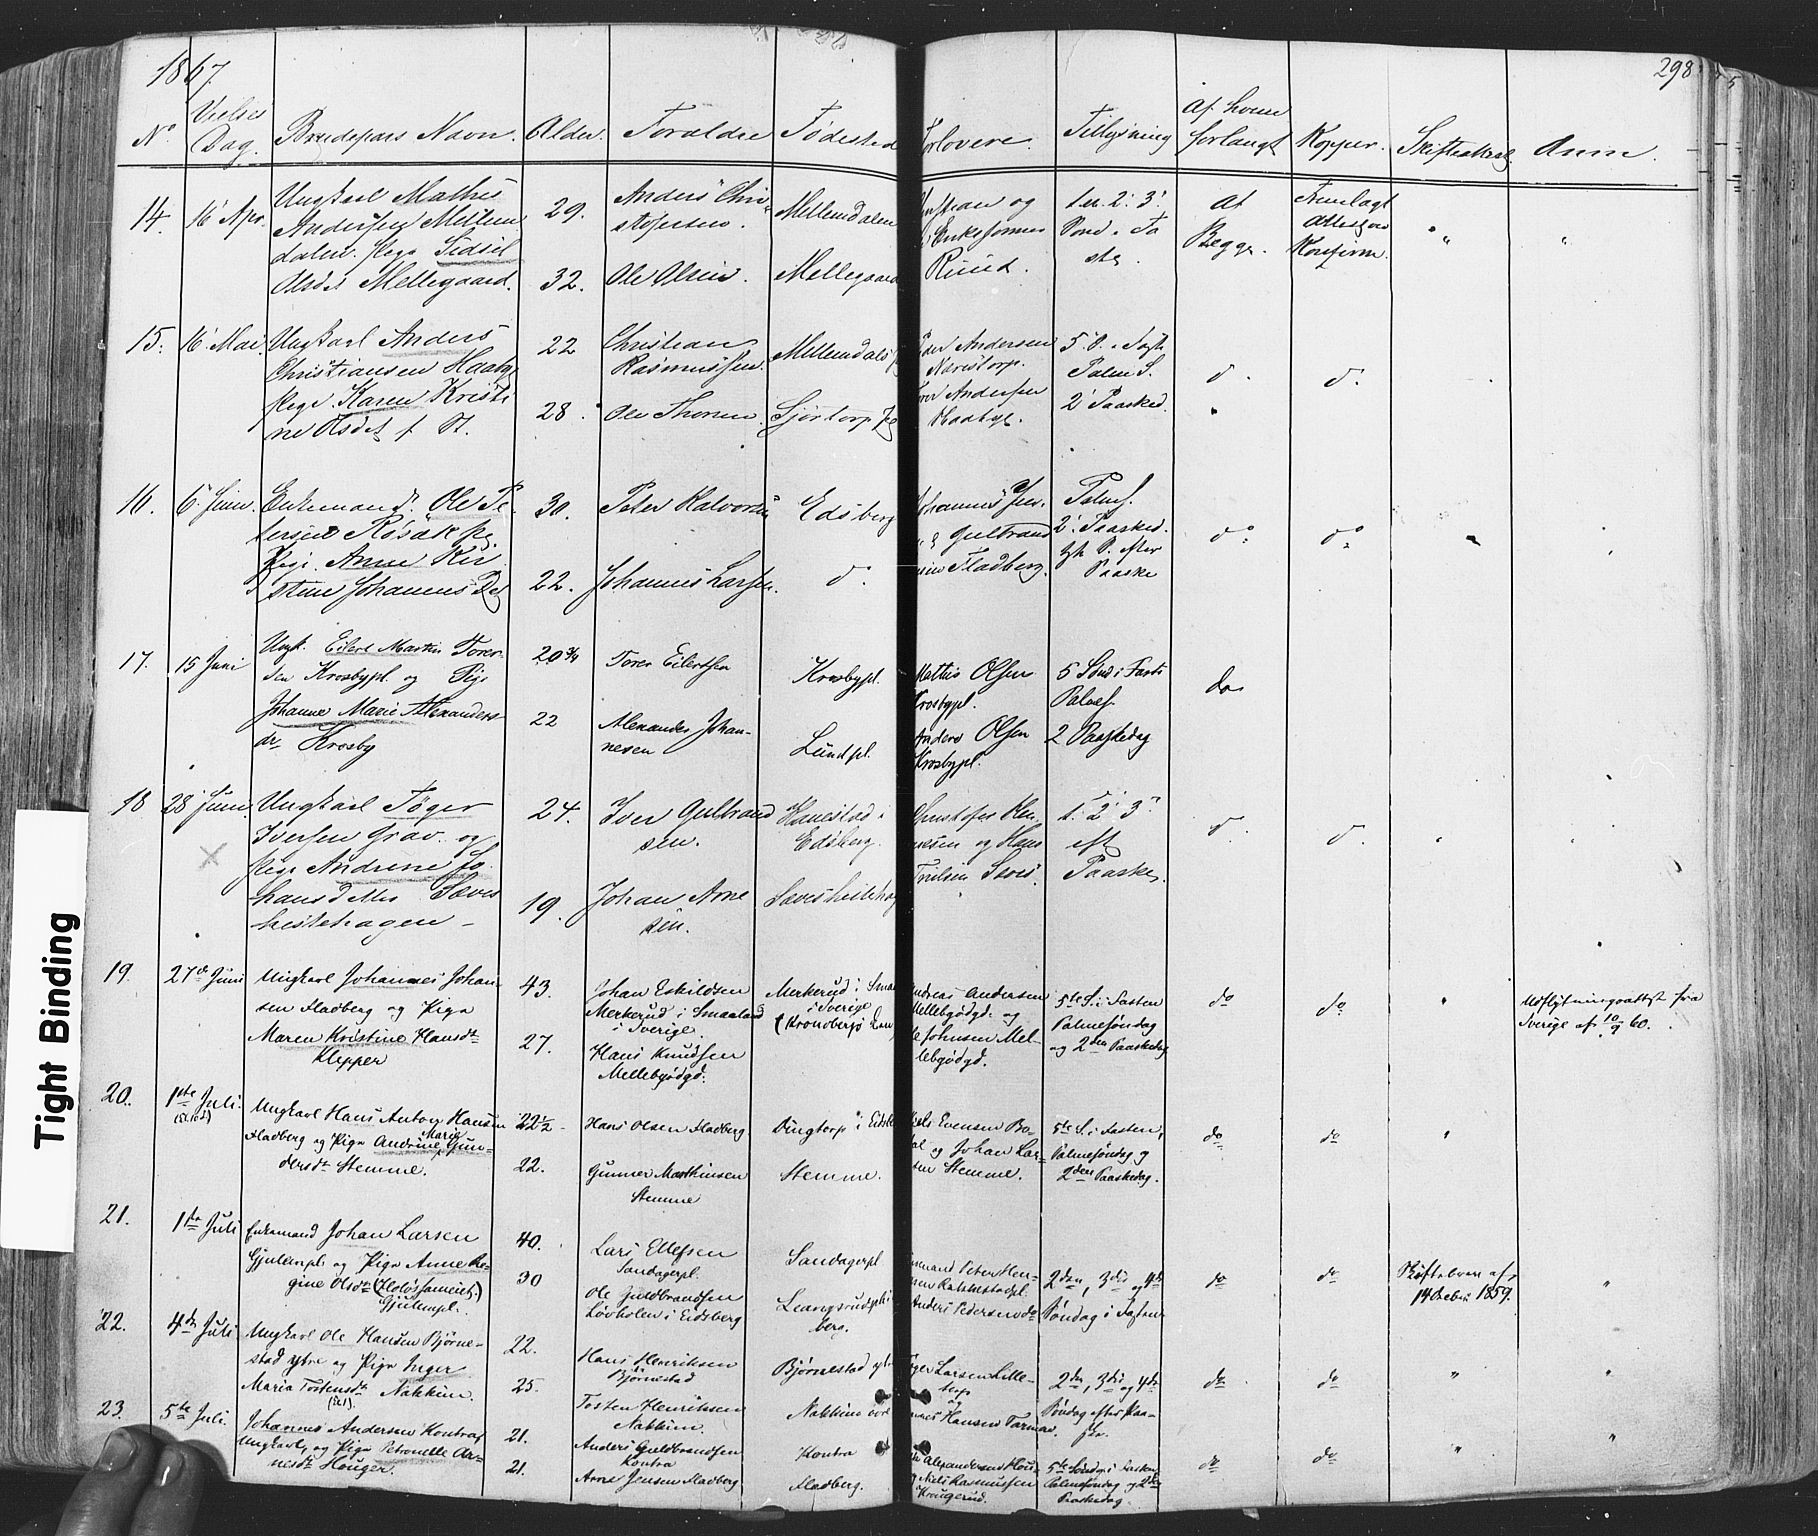 1867.
298
No
Vielses Dag.
Brudepars Navn.
Alder.
Forældre
Fødested
Forlovere.
Tillysning
Af hvem forlangt
Kopper.
Skifteattest.
Anm.
14. 16 Apr. Ungkarl Mathis
Andersen Mellem
dalen. Pige Sidsil
Olsdt Mellegaard.
29.
32.
Anders Chri
stofersen.
Ole Olsen.
Mellemdalen
Mellegaard
og
Ruud.
1. 2. 3.
Af
Begge.
15. 16 Mai. Ungkarl Anders
Christiansen Haaby
Pige Karen Kristi
ne Olsdt
22
28.
Christian
Rasmussen.
Ole Thoresen.
Mellemdals
Sjøtorp
Andersen
Narestorp.
Andersen
Haabyl.
Palm S.
2 Paasked.
do.
do.
16. 6 Juni. Enkemand. Ole Pe
tersen Røsæk
Pige. Anne Kir
stine Johannes Dt
30.
22.
Peter Halvorsen
Johannes Larsen.
Edsberg
do.
Johannes
Gulbrand
sen Fladberg.
Palmes.
2. Paasked.
efter
Paaske
do.
do.
17. 15 Juni Ungk. Eilert Martin Torer
sen Krosbypl. og Pige
Johanne Marie Alexanders
dr Krosby
20 3/4
22
Torer Eilertsen
Alexander Johan-
nesen
Krosbypl.
Lundpl.
Mathis Olsen
Krosbypl.
Anders Olsen
Krosbypl.
5 Sønd i Faste
Palmes.
2 Paaskedag
do
18 28 Juni. Ungkarl Tøger
Iversen Grav. og
Pige Andrine Jo
hansdatter Seves
hestehagen -
24.
19.
Iver Gulbrand
sen.
Johan Arne
sen.
Hanestad i
Edsberg.
Seveshestehag
Christofer
og Hans
Trulsen Seves.
1. 2. 3.
eft
Paaske.
do.
do.
19. 27de Juni Ungkarl Johannes Johan-
sen Fladberg og Pige
Maren Kristine Hansdt
Klepper
43.
27.
Johan Eskildsen
Merkerud i Smaaland
i Sverige
Hans Knudsen
Mellebyødgd.
Merkerud i Smaa
i Sverige
(Kronobergs Len)
Andreas Andersen
Mellebyødgd. og
Ole Johnsen Mel-
lebyødgd.
5te S. i Fasten
Palmesøndag
og 2den Paaskedag
do
do
Udflytningsattest fra
Sverige af 10/9 60.
20. 1ste Juli. Ungkarl Hans Anton Hansen
Fladberg og Pige Andrine Marie Gun-
dersdt Stemme.
22½
22.
Hans Olsen Fladberg.
Gunner Mathisen
Stemme
Dingtorp i Eidsb
Stemme.
Niels Evensen Bø-
dal og Johan Lar-
sen Stemme.
5te S. i Fasten,
Palmesøndag og
2den Paaskedag.
do
do
21. 1ste Juli Enkemand Johan Larsen
Gjulempl. og Pige Anne Re-
gine Olsdt
Gjulempl.
40.
30
Lars Ellefsen
Sandagerpl.
Ole Guldbrandsen
Løvholen i Eidsberg
Sandagerpl.
Leangsrudpl i
berg.
Peter Hen-
sen Rakkestadpl.
Anders Pedersen do
2den, 3die og 4de
Søndag i Fasten
do
do
Skiftebrev af
14 Decbr 1859.
22. 4de Juli Ungkarl Ole Hansen Bjørne-
stad ytre og Pige Inger
Maria Tostensdt Nakkim.
22.
25.
Hans Henriksen
Bjørnestad
Tosten Henriksen
Nakkim.
Bjørnestad ytre
Nakkim
Larsen Lille-
torp
og
Hansen Tarmoe.
2den, 3die og 4de
Søndag efter Paa-
ske.
do
do
23. 5te Juli. Johannes Andersen Kontra
Ungkarl, og Pige Petronelle Ar-
nesdt Houger.
21.
21.
Anders Guldbrandsen
Kontra
Arne Jensen Fladberg
Kontra
Fladberg.
Alexandersen Hou-
og Niels Rasmussen
Kraugerud.
5te Søndag i Fasten
Palmesøndag og 2den
Paaskedag.
do
do
Tight Binding